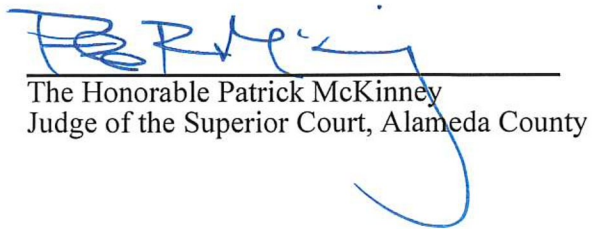 The Honorable Patrick McKinney
Judge of the Superior Court, Alameda County